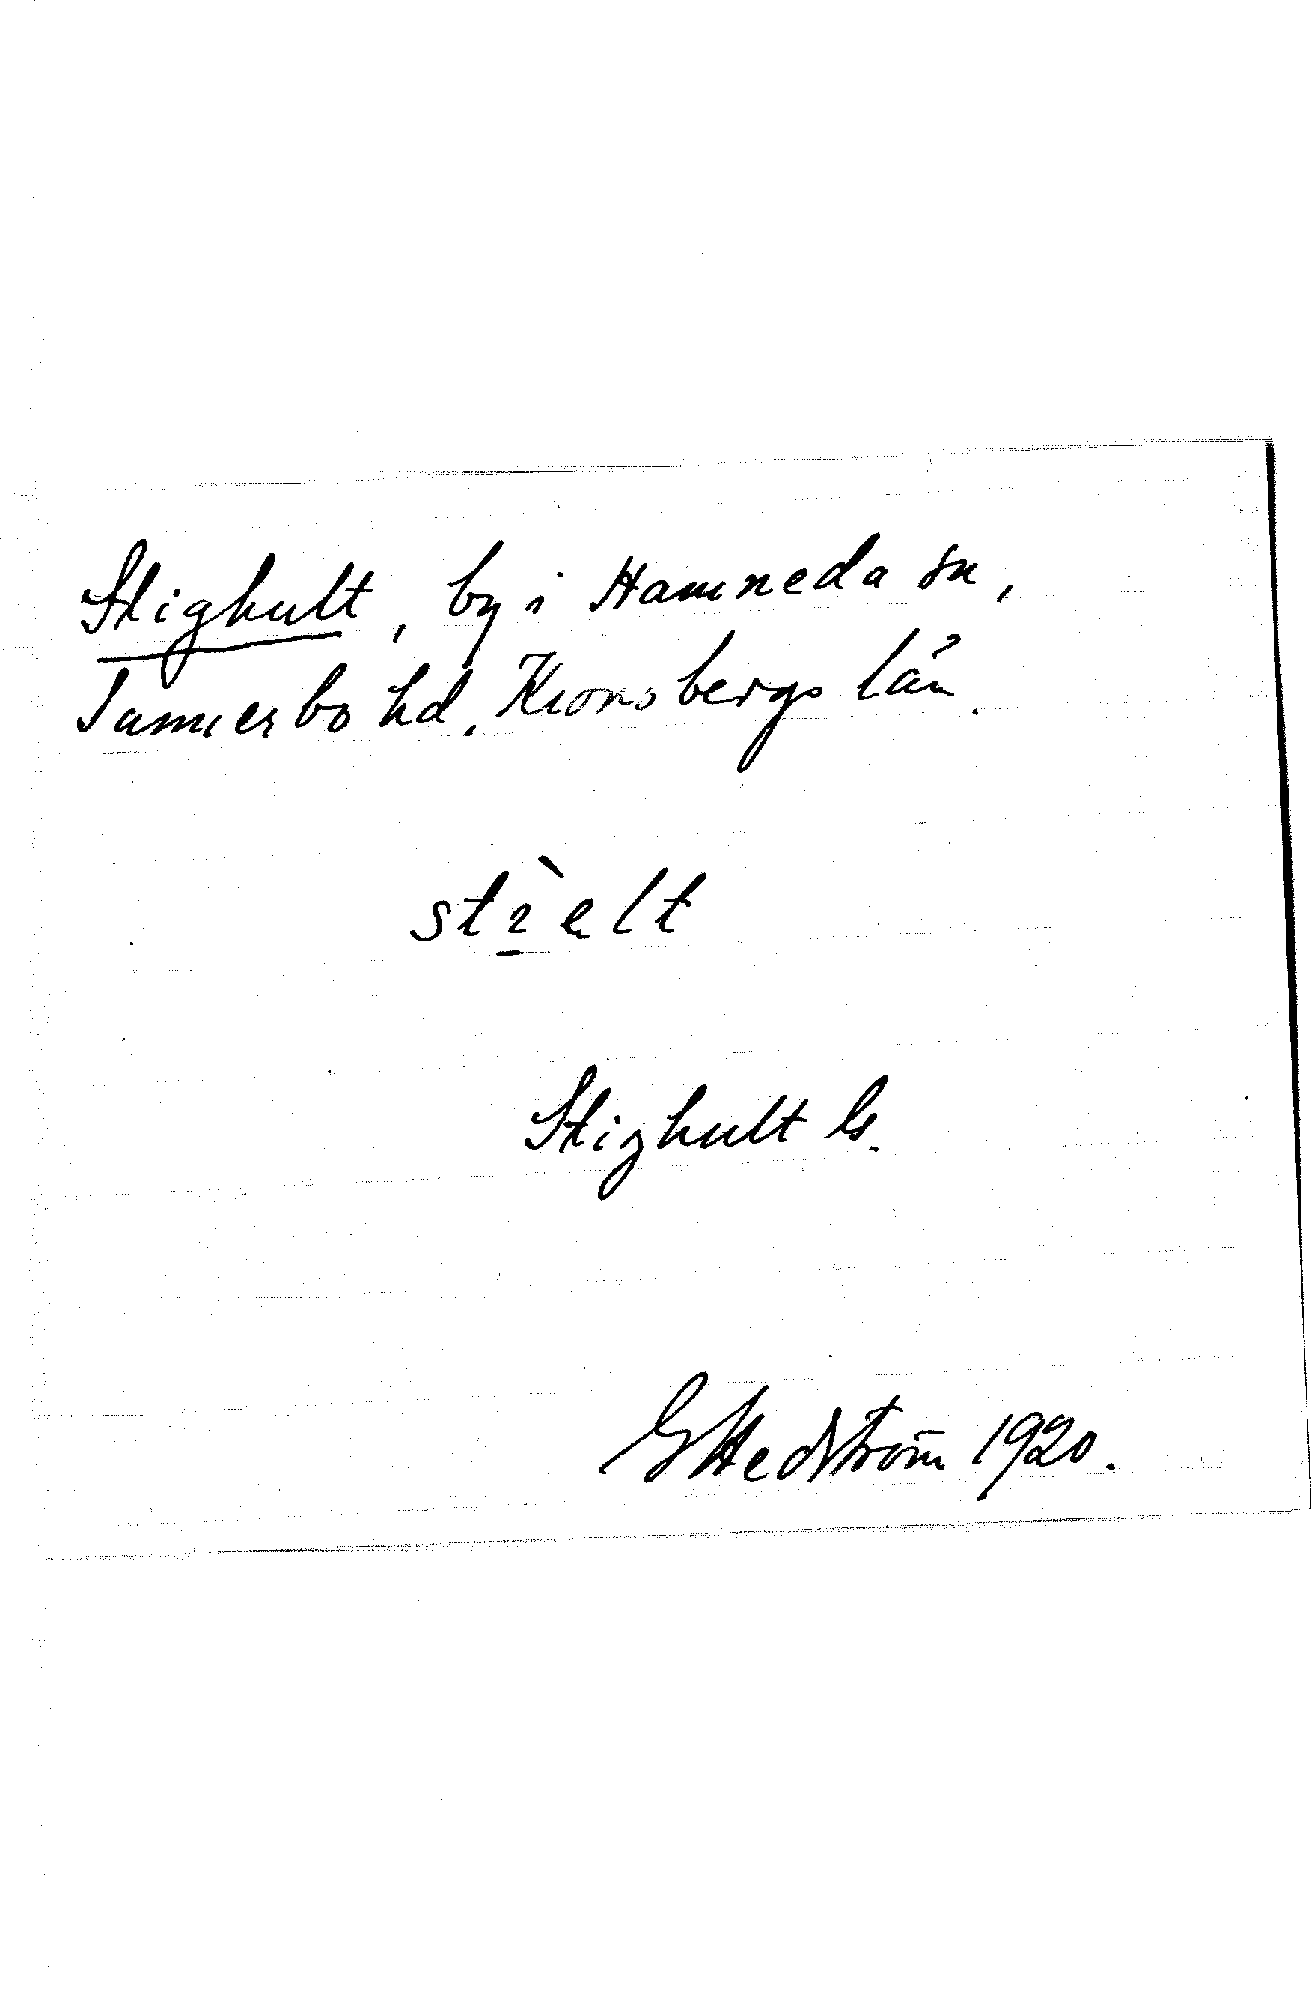 Stighult, by i Hamneda sn,
Sunnerbo hd, Kronobergs län.
stı̱̀elt
Stighult
GHedström 1920.